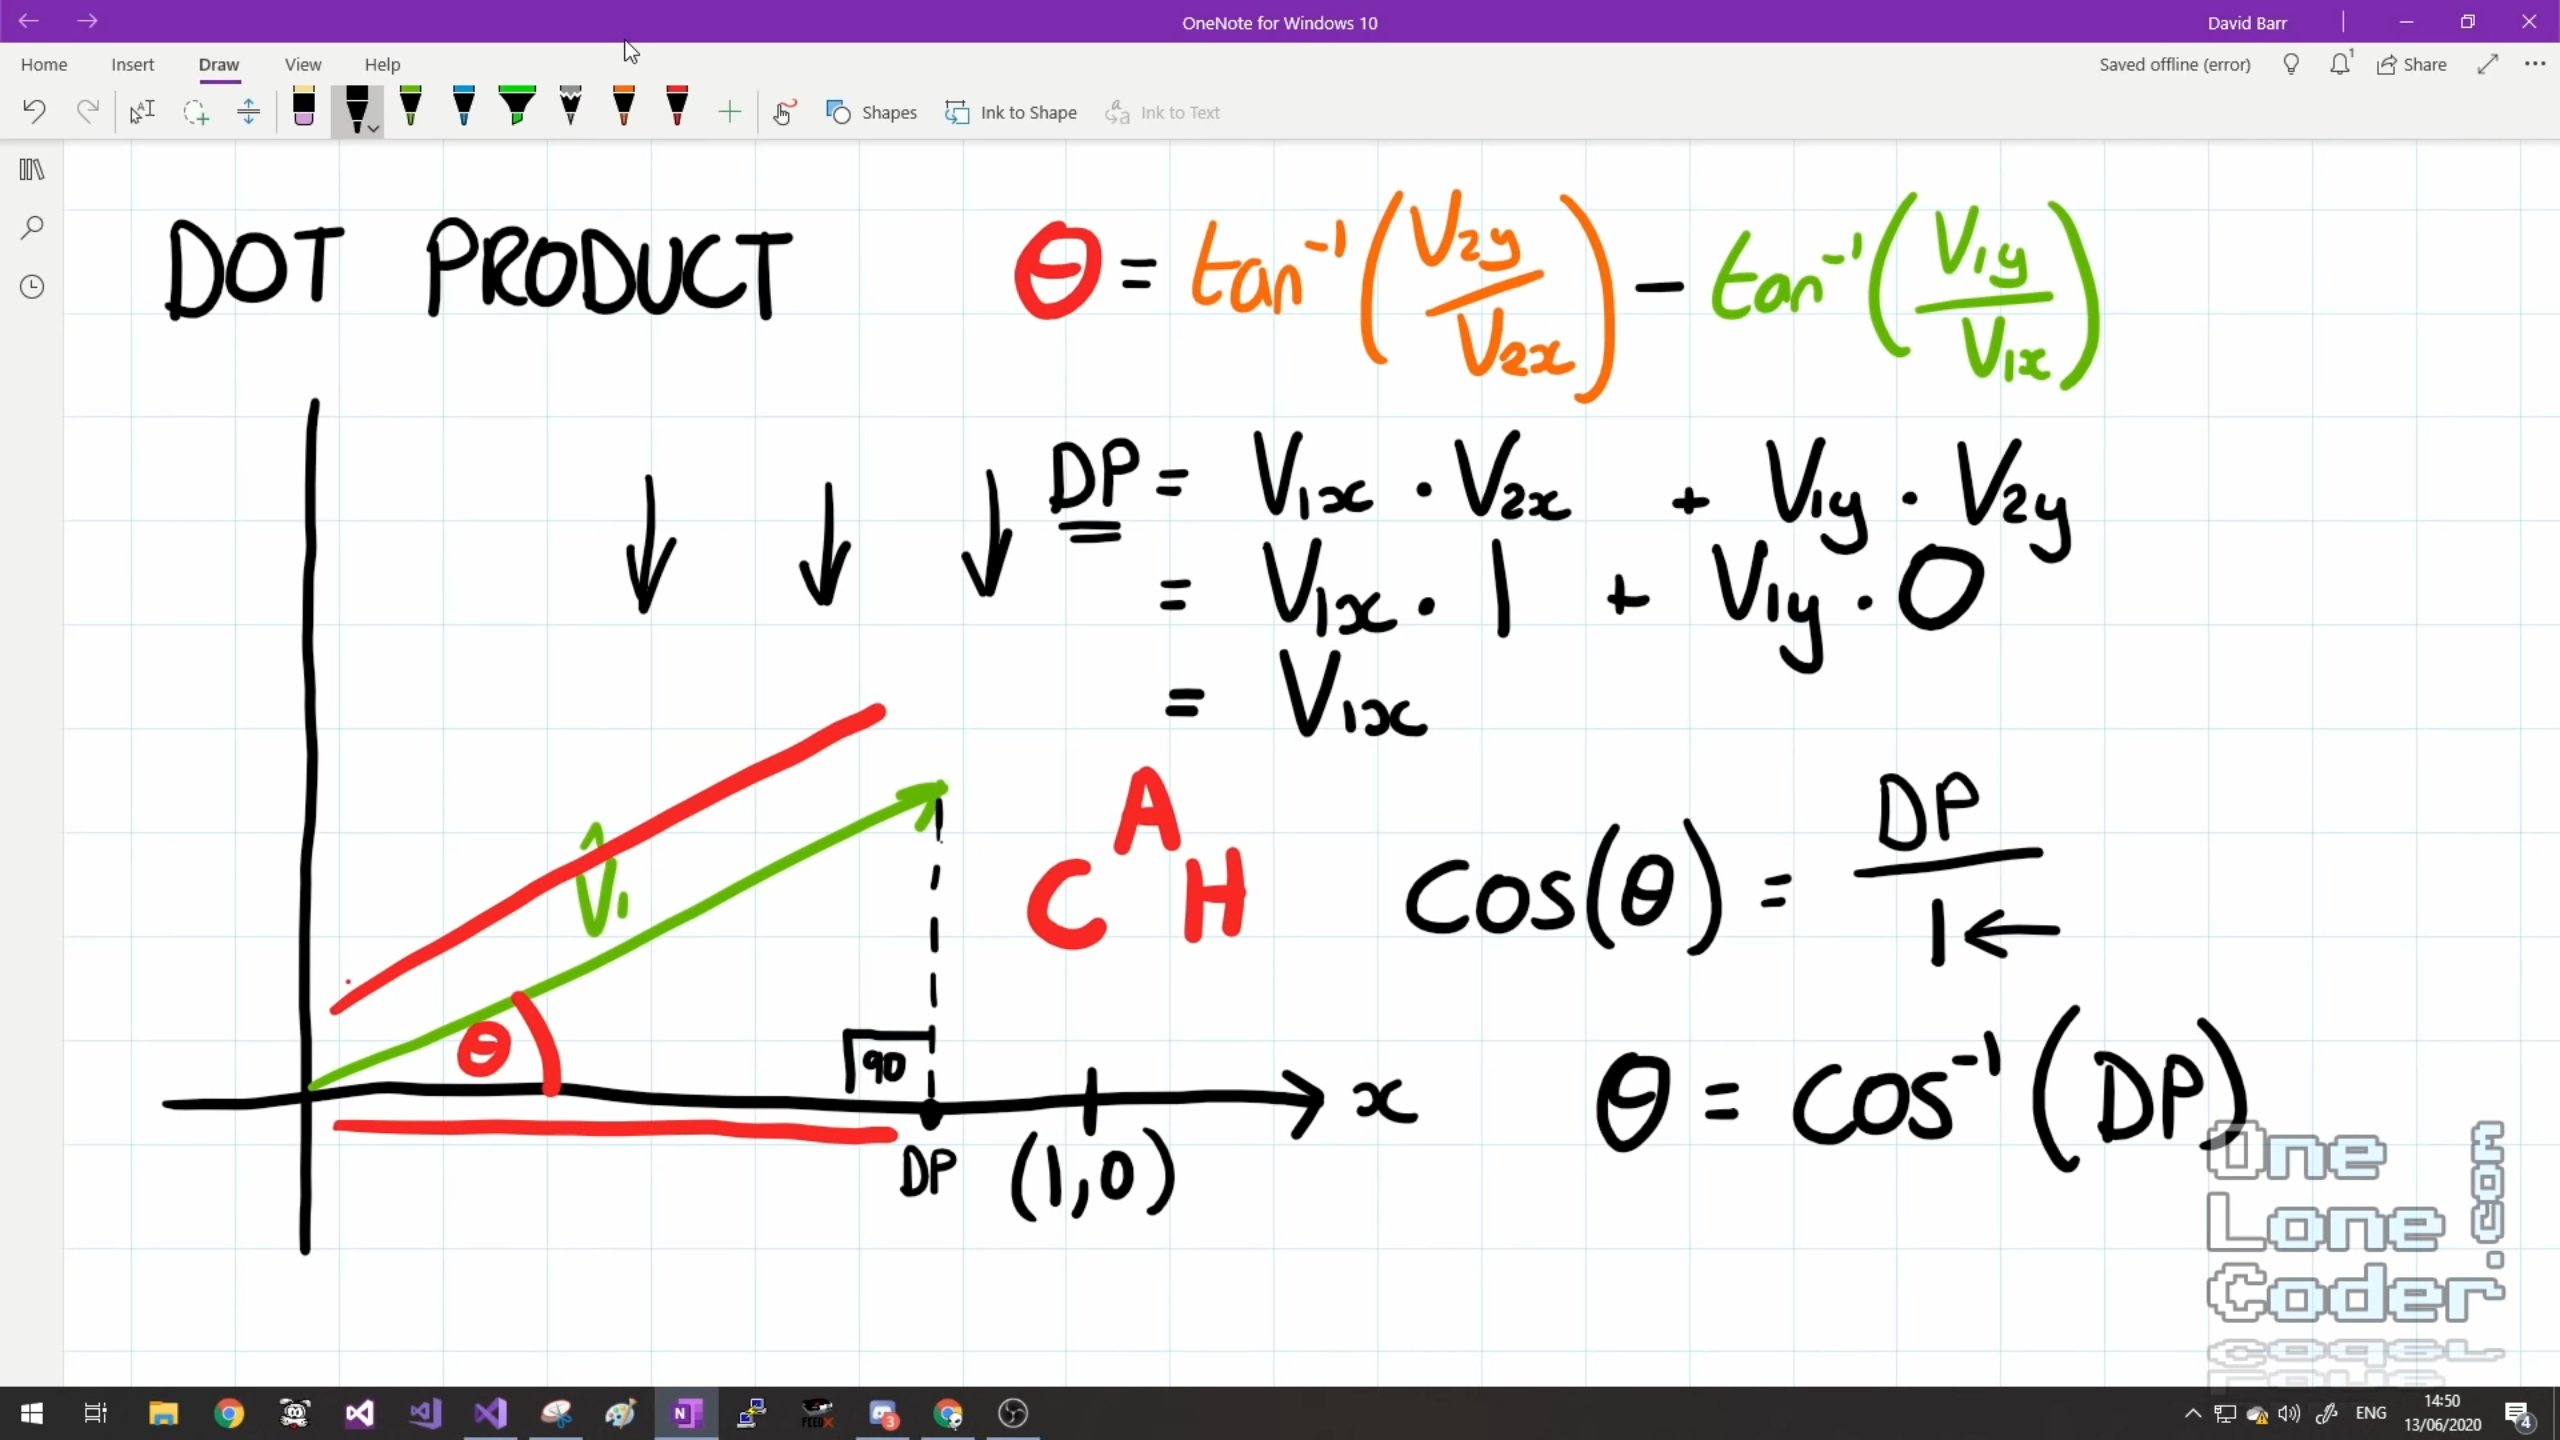 OneNote for Windows 10
David Barr
Home Insert Draw View Help
Saved offline (error)
1
Share
Shapes
Ink to Shape
Ink to Text
DOT PRODUCT
θ = tan⁻¹(V2y/V2x) - tan⁻¹(V1y/V1x)
DP = V1x · V2x + V1y · V2y
= V1x · 1 + V1y · 0
= V1x
V̂1
C A H
cos(θ) = DP/1 ←
θ
90
x
θ = cos⁻¹(DP)
DP (1,0)
One
Lone
Coder
.com
N
3
ENG
14:50
13/06/2020
4